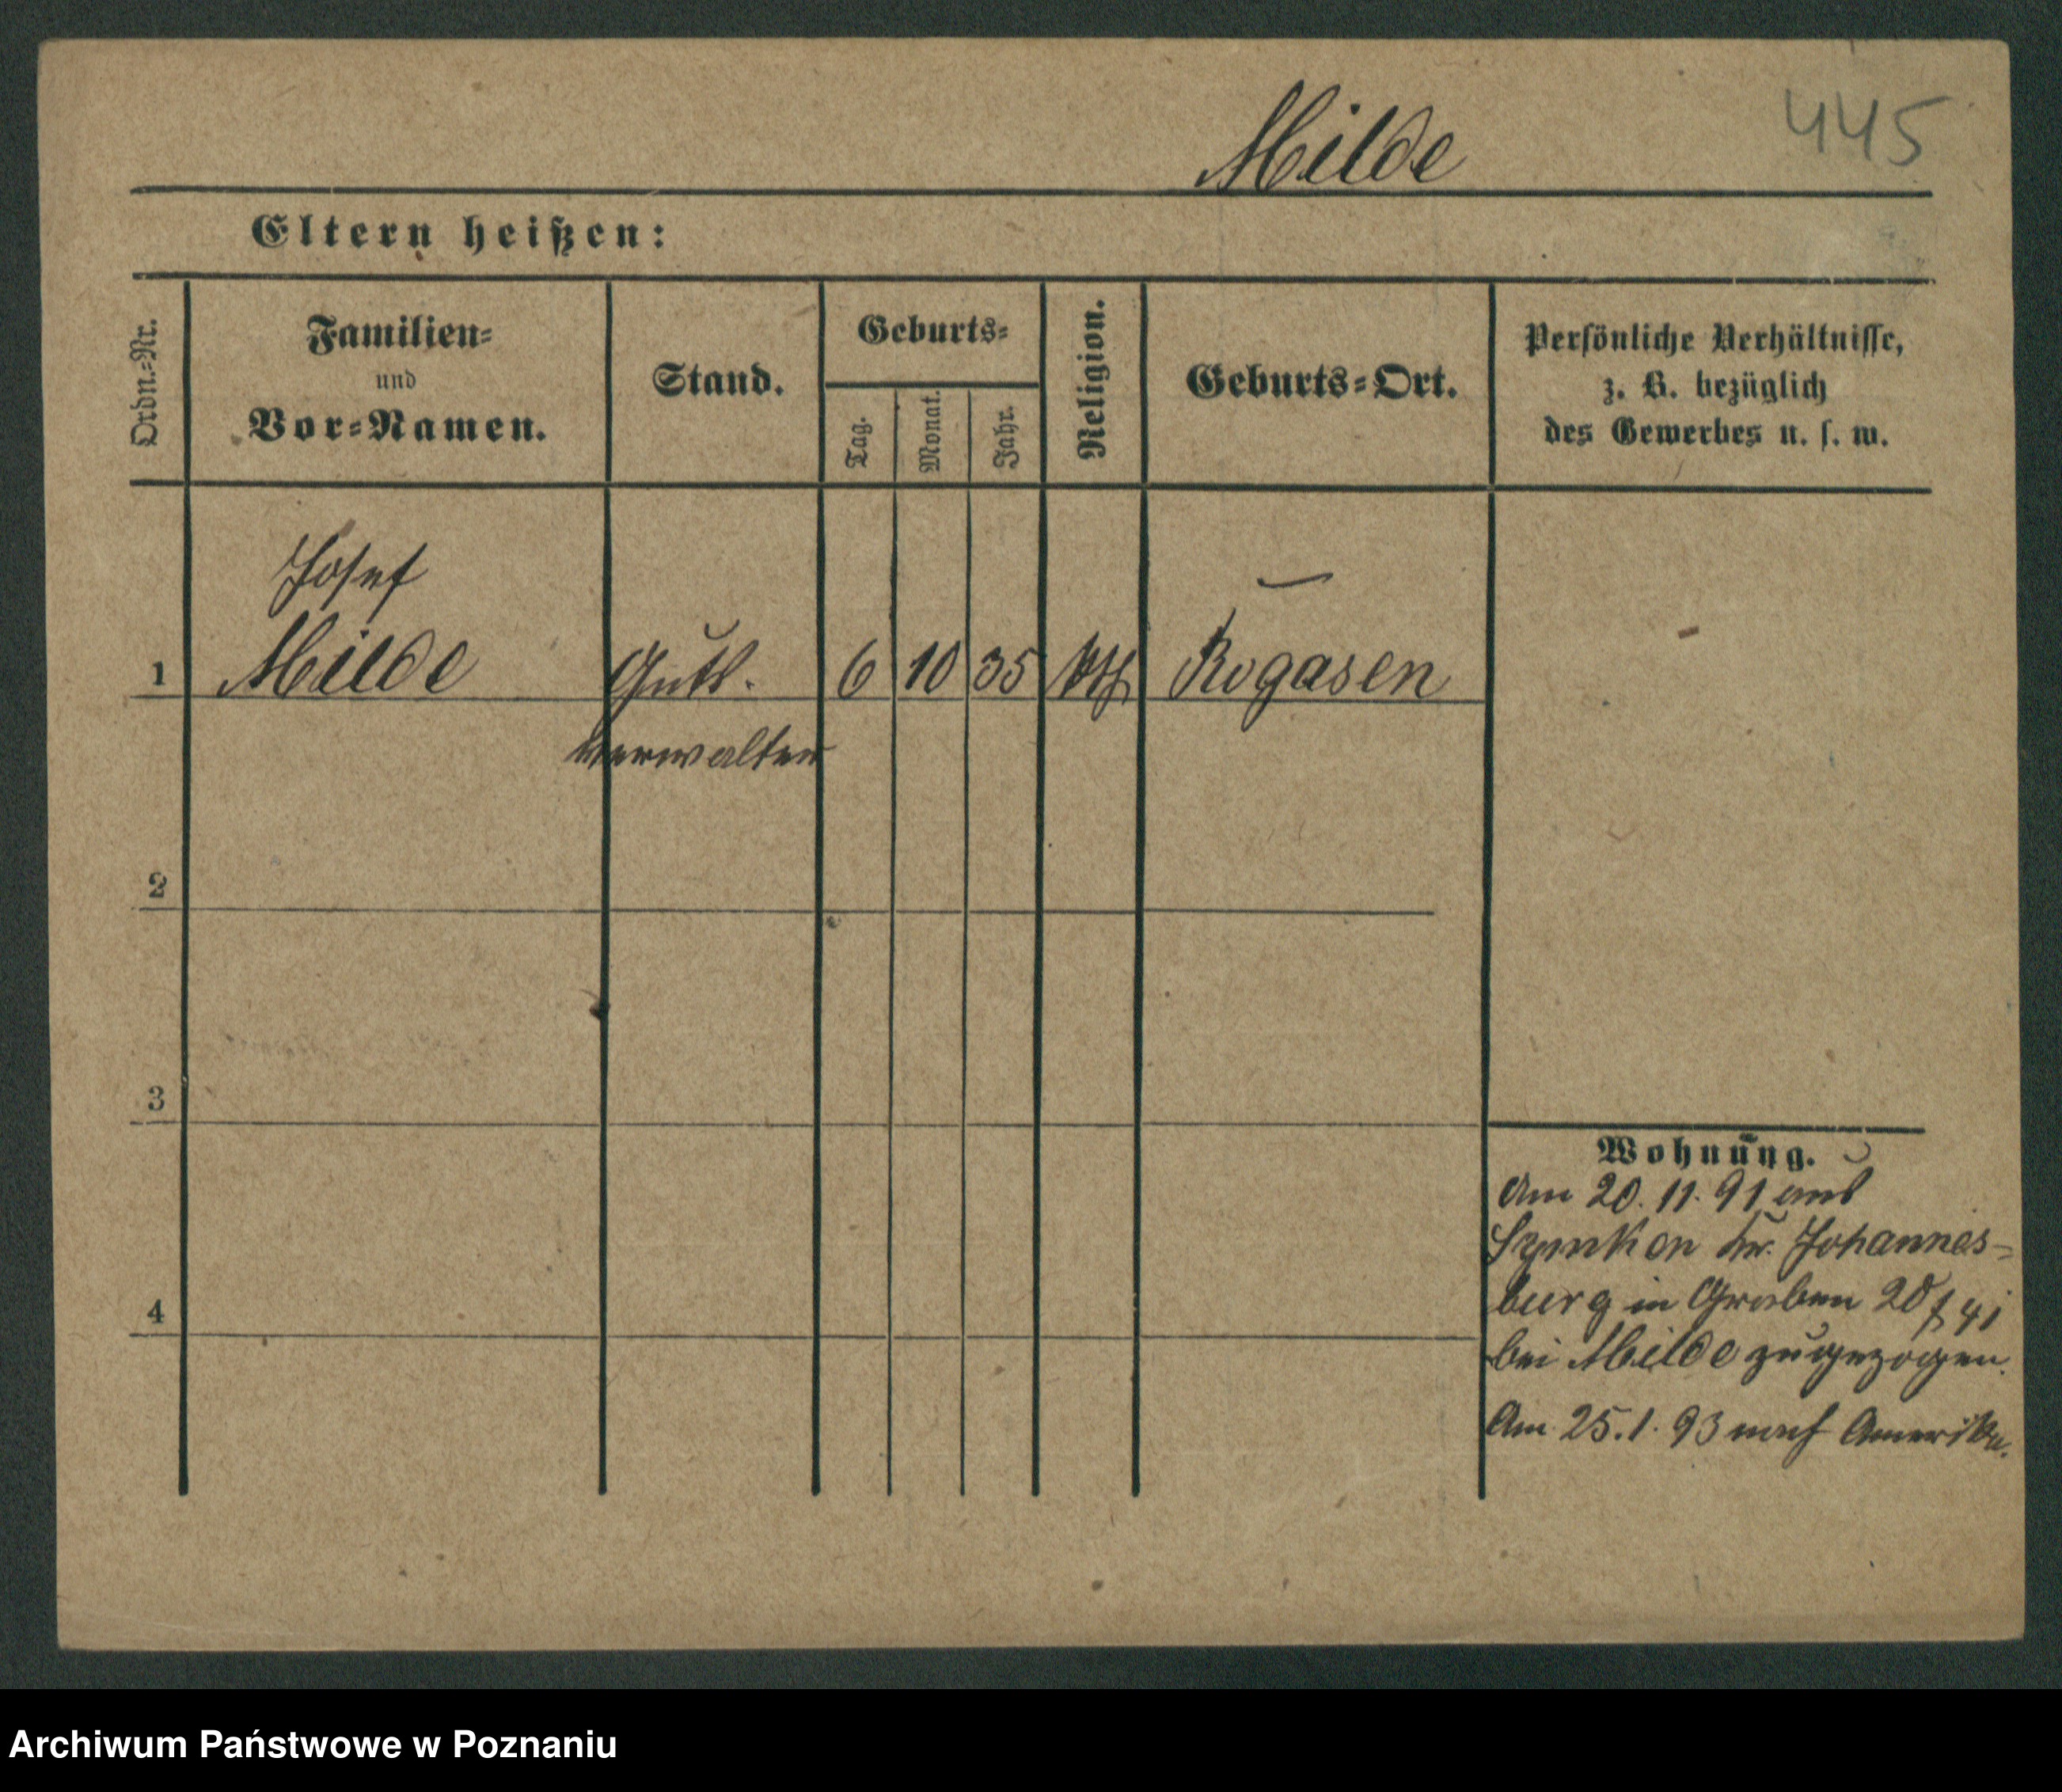 Milde
445
Eltern heißen:
Ordn.-Nr.
Familien-
und
Vor-Namen.
Stand.
Geburts-
Tag.
Monat.
Jahr.
Religion.
Geburts-Ort.
Persönliche Verhältnisse,
z. B. bezüglich
des Gewerbes u. s. w.
Josef
1 Milde Guts. 6 10 35 kth Rogasen
verwalter
2
3
4
Wohnung.
Am 20. 11. 91 aus
Kr. Johannes-
burg in Graben 20
bei Milde zugezogen.
Am 25. 1. 93 nach Amerika.
Archiwum Państwowe w Poznaniu